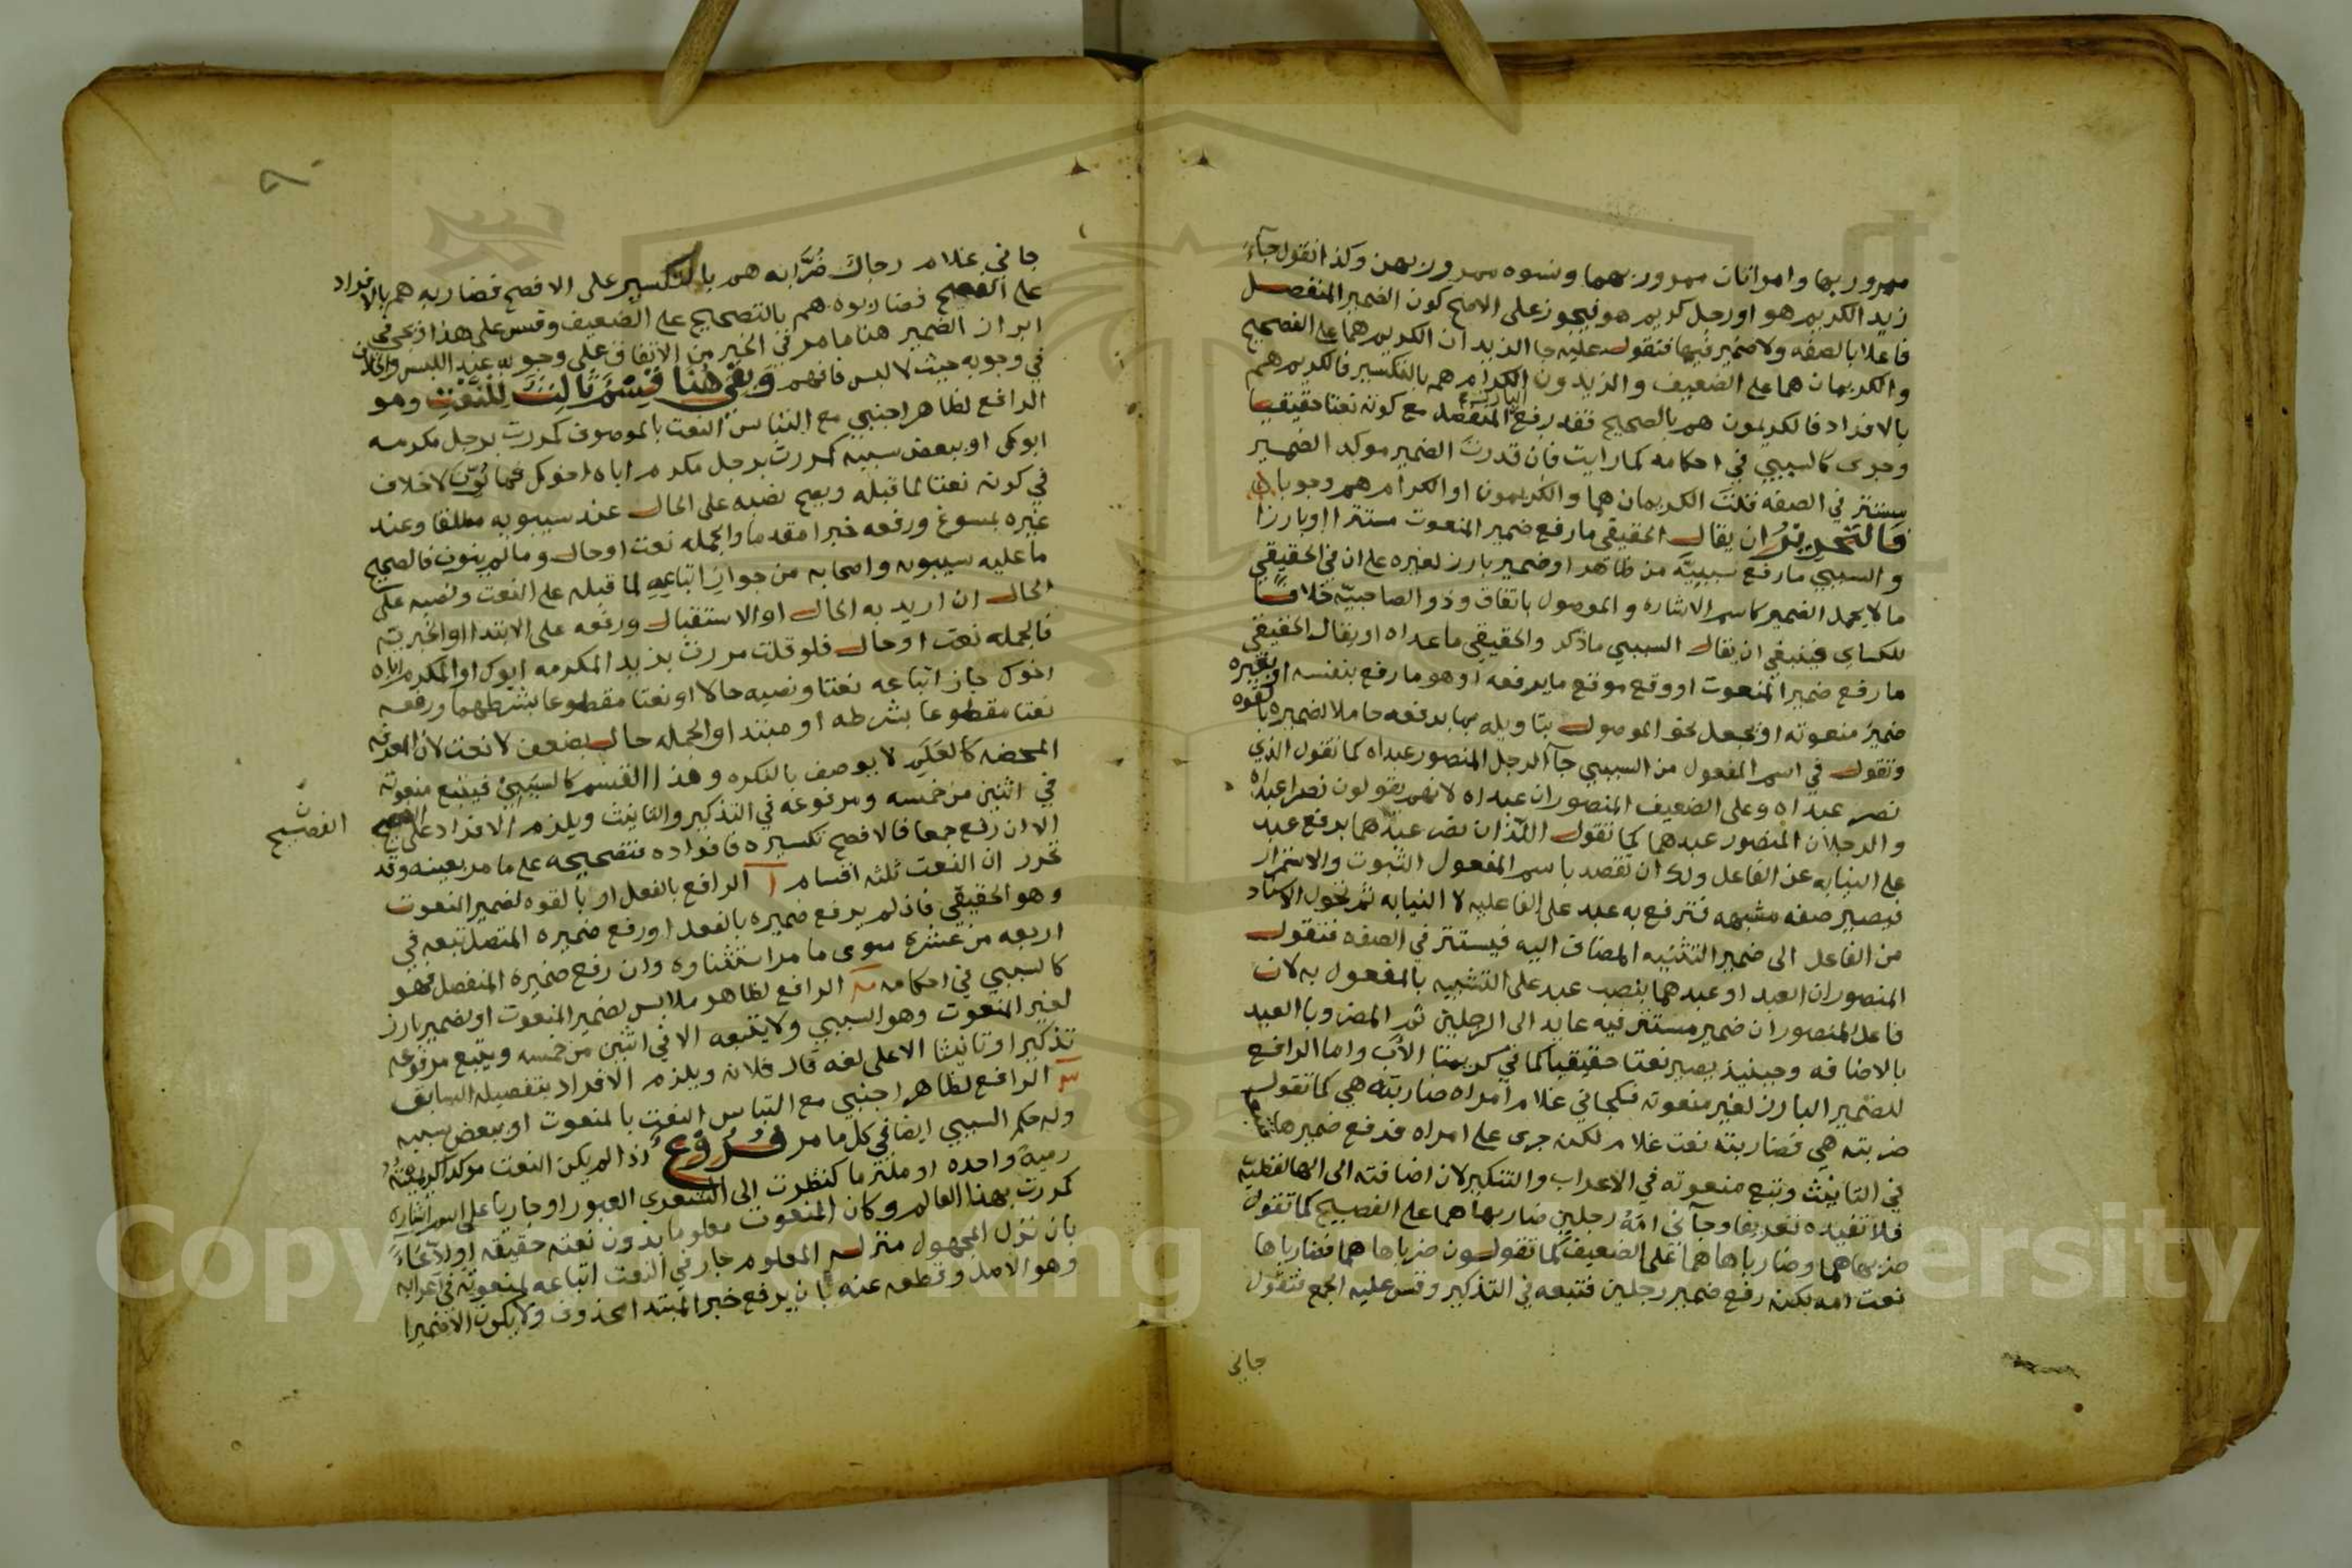 ممرور بها وامراتان ممرور بهما ونسوه ممرور بهن وكذا تقول جاء
زيد الكريم هو او رجل كريم هو فيجوز على الاصح كون الضمير المنفصل
فاعلا بالصفه ولا ضمير فيها فتقول عليه جا الزيدان الكريم هما على الفصيح
والكريمان هما على الضعيف والزيدون الكرام هم بالتكسير فالكريم هم
بالافراد فالكريمون هم بالصحيح فقد رفع البارز المنفصل مع كونه نعتا حقيقيا
وجرى كالسببي في احكامه كما رايت فان قدرت الضمير موكد الضمير
مستتر في الصفه قلت الكريمان هما والكريمون او الكرام هم وجوبا
فالتحرير ان يقال الحقيقي ما رفع ضمير المنعوت مستترا او بارزا
والسببي ما رفع سببيه من ظاهر او ضمير بارز لغيره على ان في الحقيقي
ما لا يحمل الضمير كاسم الاشاره والموصول باتفاق وذو الصاحبيه خلافا
للكساي فينبغي ان يقال السببي ما ذكر والحقيقي ما عداه او يقال الحقيقي
ما رفع ضمير المنعوت او وقع موقع ما يرفعه او هو ما رفع بنفسه او بغيره
ضمير منعوته او يجعل نحو الموصول بتاويله بما يرفعه حاملا لضميره بالقوه
وتقول في اسم المفعول من السببي جا الرجل المنصور عبداه كما تقول الذي
نصر عبداه وعلى الضعيف المنصوران عبداه لانهم يقولون نصرا عبداه
والرجلان المنصور عبدهما كما تقول اللذان نصر عبدهما برفع عبد
على النيابه عن الفاعل ولك ان تقصد باسم المفعول الثبوت والاستمرار
فيصير صفه مشبهه فترفع به عبد على الفاعليه لا النيابه ثم تحول الاسناد
من الفاعل الى ضمير التثنيه المضاف اليه فيستتر في الصفه فتقول
المنصوران العبد او عبدهما بنصب عبد على التشبيه بالمفعول به لان
فاعل المنصوران ضمير مستتر فيه عايد الى الرجلين ثم المنصوبا العبد
بالاضافه وحينيذ يصير نعتا حقيقيا كما في كريمتا الاب واما الرافع
للضمير البارز لغير منعوته فكجاني غلام امراه ضاربته هي كما تقول
ضربته هي فضاربته نعت غلام لكنه جرى على امراه فرفع ضميرها
في التانيث وتبع منعوته في الاعراب والتنكير لان اضافته الى الها لفظيه
فلا تفيده تعريفا وجاني امة رجلين ضاربها هما على الفصيح كما تقول
ضربها هما وضارباها هما على الضعيف كما تقولون ضرباها هما فضارباها
نعت امه لكنه رفع ضمير رجلين فتبعه في التذكير وقس عليه الجمع فتقول
جاني
جاني غلام رجال ضرابه هم بالتكسير على الافصح فضاربه هم بالافراد
على الفصيح فضاربوه هم بالتصحيح على الضعيف وقس على هذا ويجي في
ابراز الضمير هنا ما مر في الخبر من الاتفاق على وجوبه عند اللبس والخلاف
في وجوبه حيث لا لبس فافهم وبقي هنا قسم ثالث للنعت وهو
الرافع لظاهر اجنبي مع التباس النعت بالموصوف كمررت برجل مكرمه
ابوك او ببعض سببيه كمررت برجل مكرم اباه اخوك فما نون لا خلاف
في كونه نعتا لما قبله ويصح نصبه على الحال عند سيبويه مطلقا وعند
غيره بمسوغ ورفعه خبرا مقدما والجمله نعت او حال وما لم ينون فالصحيح
ما عليه سيبويه واصحابه من جواز اتباعه لما قبله على النعت ونصبه على
الحال ان اريد به الحال او الاستقبال ورفعه على الابتدا او الخبريه
فالجمله نعت او حال فلو قلت مررت بزيد المكرمه ابوك او المكرم اباه
اخوك جاز اتباعه نعتا ونصبه حالا او نعتا مقطوعا بشرطهما ورفعه
نعتا مقطوعا بشرطه او مبتدا والجمله حال بضعف لا نعت لان المعرفه
المحضه كالعلم لا يوصف بالنكره وهذا القسم كالسببي فيتبع منعوته
في اثنين من خمسه ومرفوعه في التذكير والتانيث ويلزم الافراد على
الفصيح
الا ان رفع جمعا فالافصح تكسيره فافراده فتصحيحه على ما مر بعينه وقد
تحرر ان النعت ثلثه اقسام ا الرافع بالفعل او بالقوه لضمير المنعوت
وهو الحقيقي فاذ لم يرفع ضميره بالفعل او رفع ضميره المتصل تبعه في
اربعه من عشره سوى ما مر استثناوه وان رفع ضميره المنفصل فهو
كالسببي في احكامه ب الرافع لظاهر ملابس لضمير المنعوت او لضمير بارز
لغير المنعوت وهو السببي ولا يتبعه الا في اثنين من خمسه ويتبع مرفوعه
تذكيرا وتانيثا الا على لغه قال فلانه ويلزم الافراد بتفصيله السابق
الرافع لظاهر اجنبي مع التباس النعت بالمنعوت او ببعض سببيه
وله حكم السببي ايضا في كل ما مر فروع اذا لم يكن النعت موكدا
رمية واحده او ملتزما كنظرت الى الشعرى العبور او جاريا على اسم اشاره
كمررت بهذا العالم وكان المنعوت معلوما بدون نعته حقيقه او ادعاء
بان نزل المجهول منزله المعلوم جاز في النعت اتباعه لمنعوته في اعرابه
وهو الاصل وقطعه عنه بان يرفع خبر المبتدا محذوف ولا يكون الا ضميرا
Copyright © King Saud University
1957